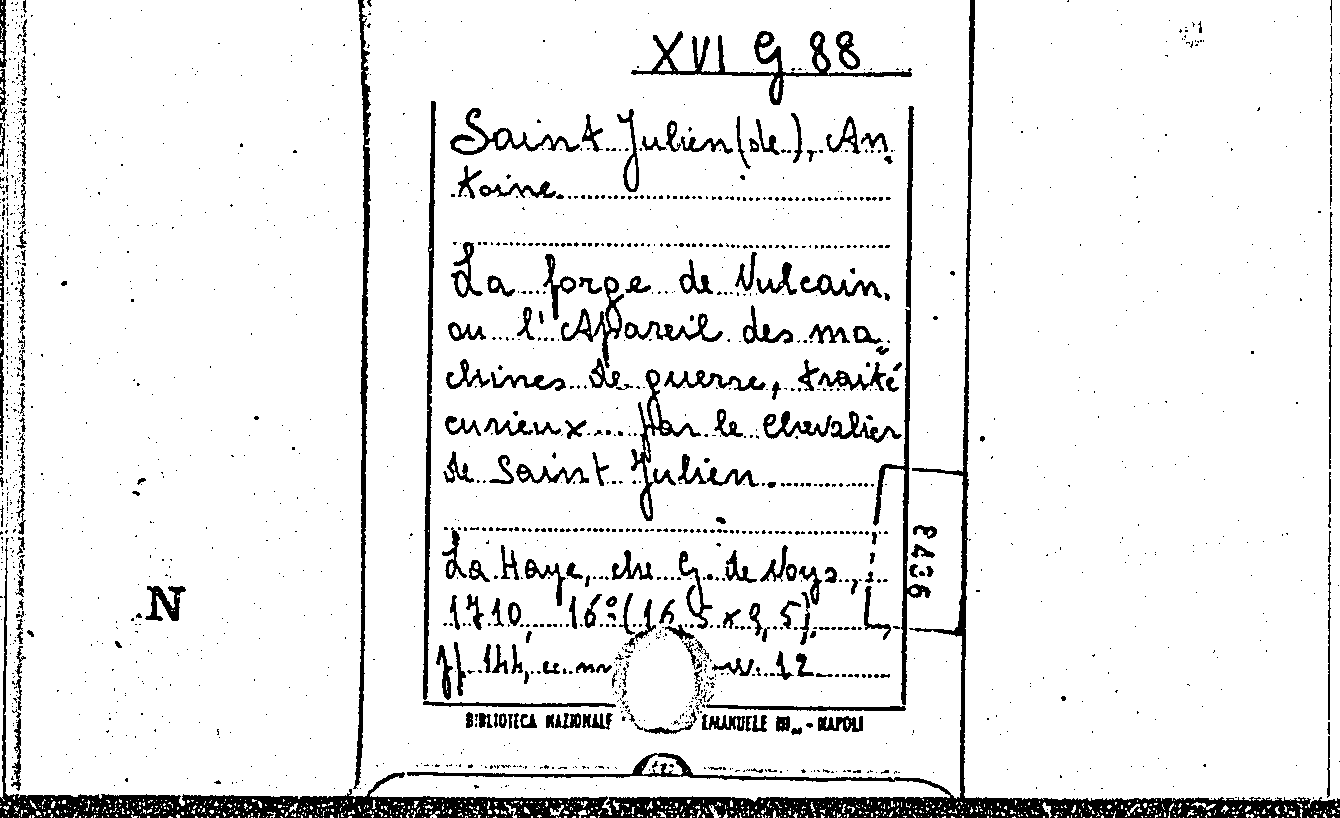 XVI G 88
Saint Julien (de), An-
toine.
La forge de Vulcain,
ou l'Appareil des ma-
chines de guerre, traité
curieux... par le Chevalier
de Saint Julien.
8436
La Haye, che G. de Voys,
1710, 16° (16,5 x 9,5),
pp. 144, c. nn 12
N
BIBLIOTECA NAZIONALE EMANUELE III„ - NAPOLI